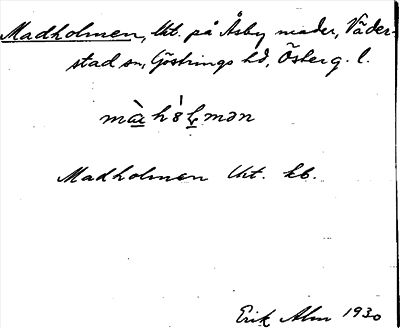 Madholmen, Ukt. på Åsby mader, Väder-
stad sn, Göstrings hd, Österg. l.
mà̱u̱ hó̱ḻmən
Madholmen Ukt. kb.
Erik Alm 1930